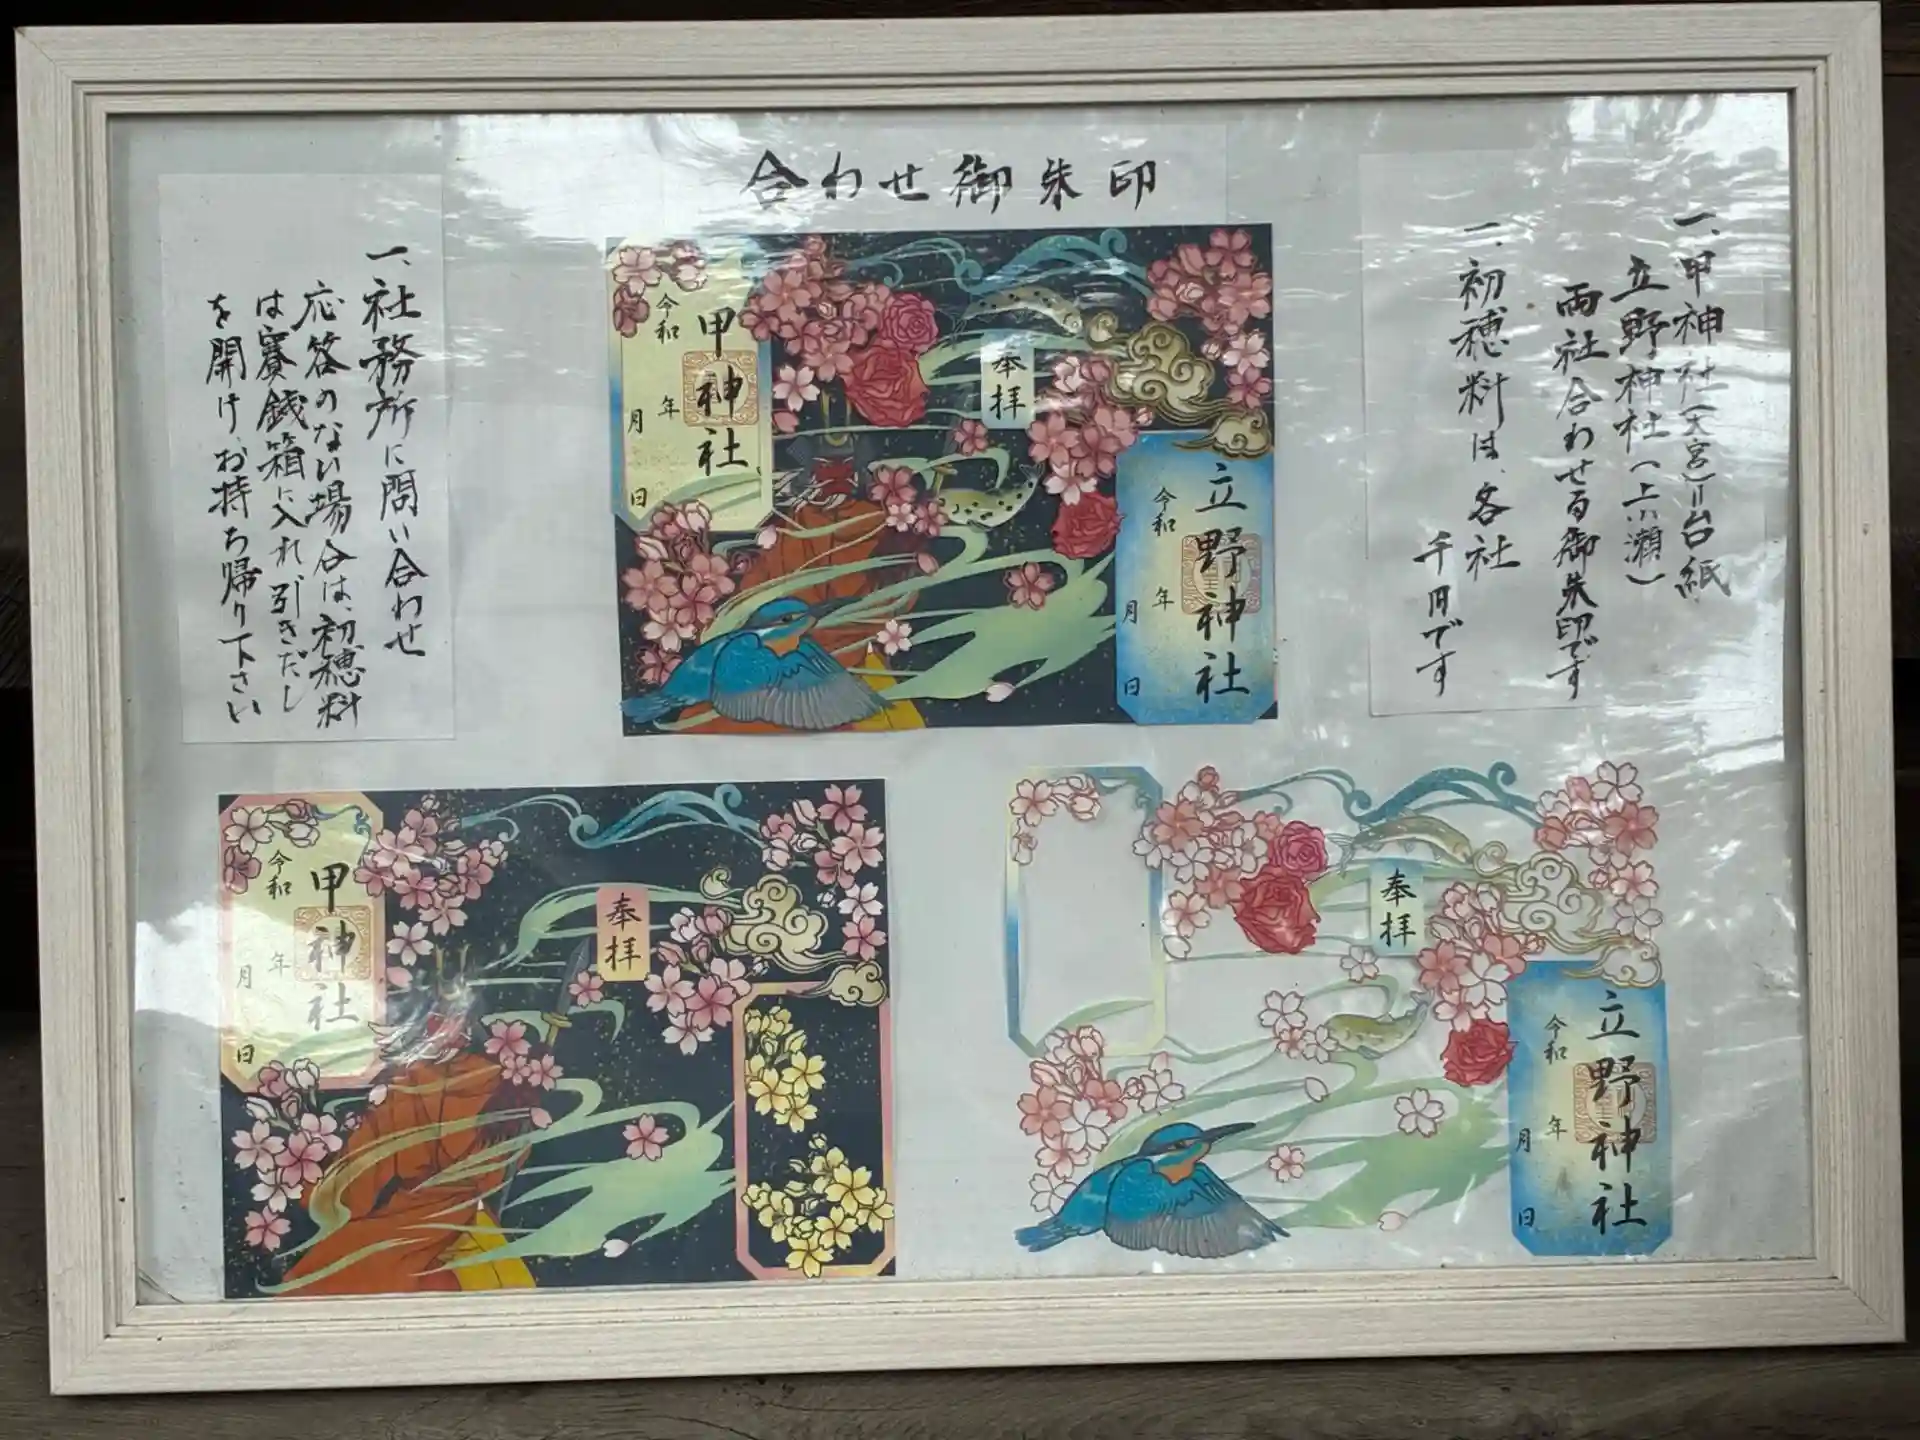 合わせ御朱印
一、甲神社(天宮)=台紙
立野神社(上小瀬)
両社合わせる御朱印です
一、初穂料は、各社
千円です
一、社務所に問い合わせ
応答のない場合は、初穂料
は賽銭箱に入れ引きだし
を開け、お持ち帰り下さい
奉拝
甲神社
令和 年
月 日
立野神社
令和 年
月 日
奉拝
甲神社
令和 年
月 日
奉拝
立野神社
令和 年
月 日